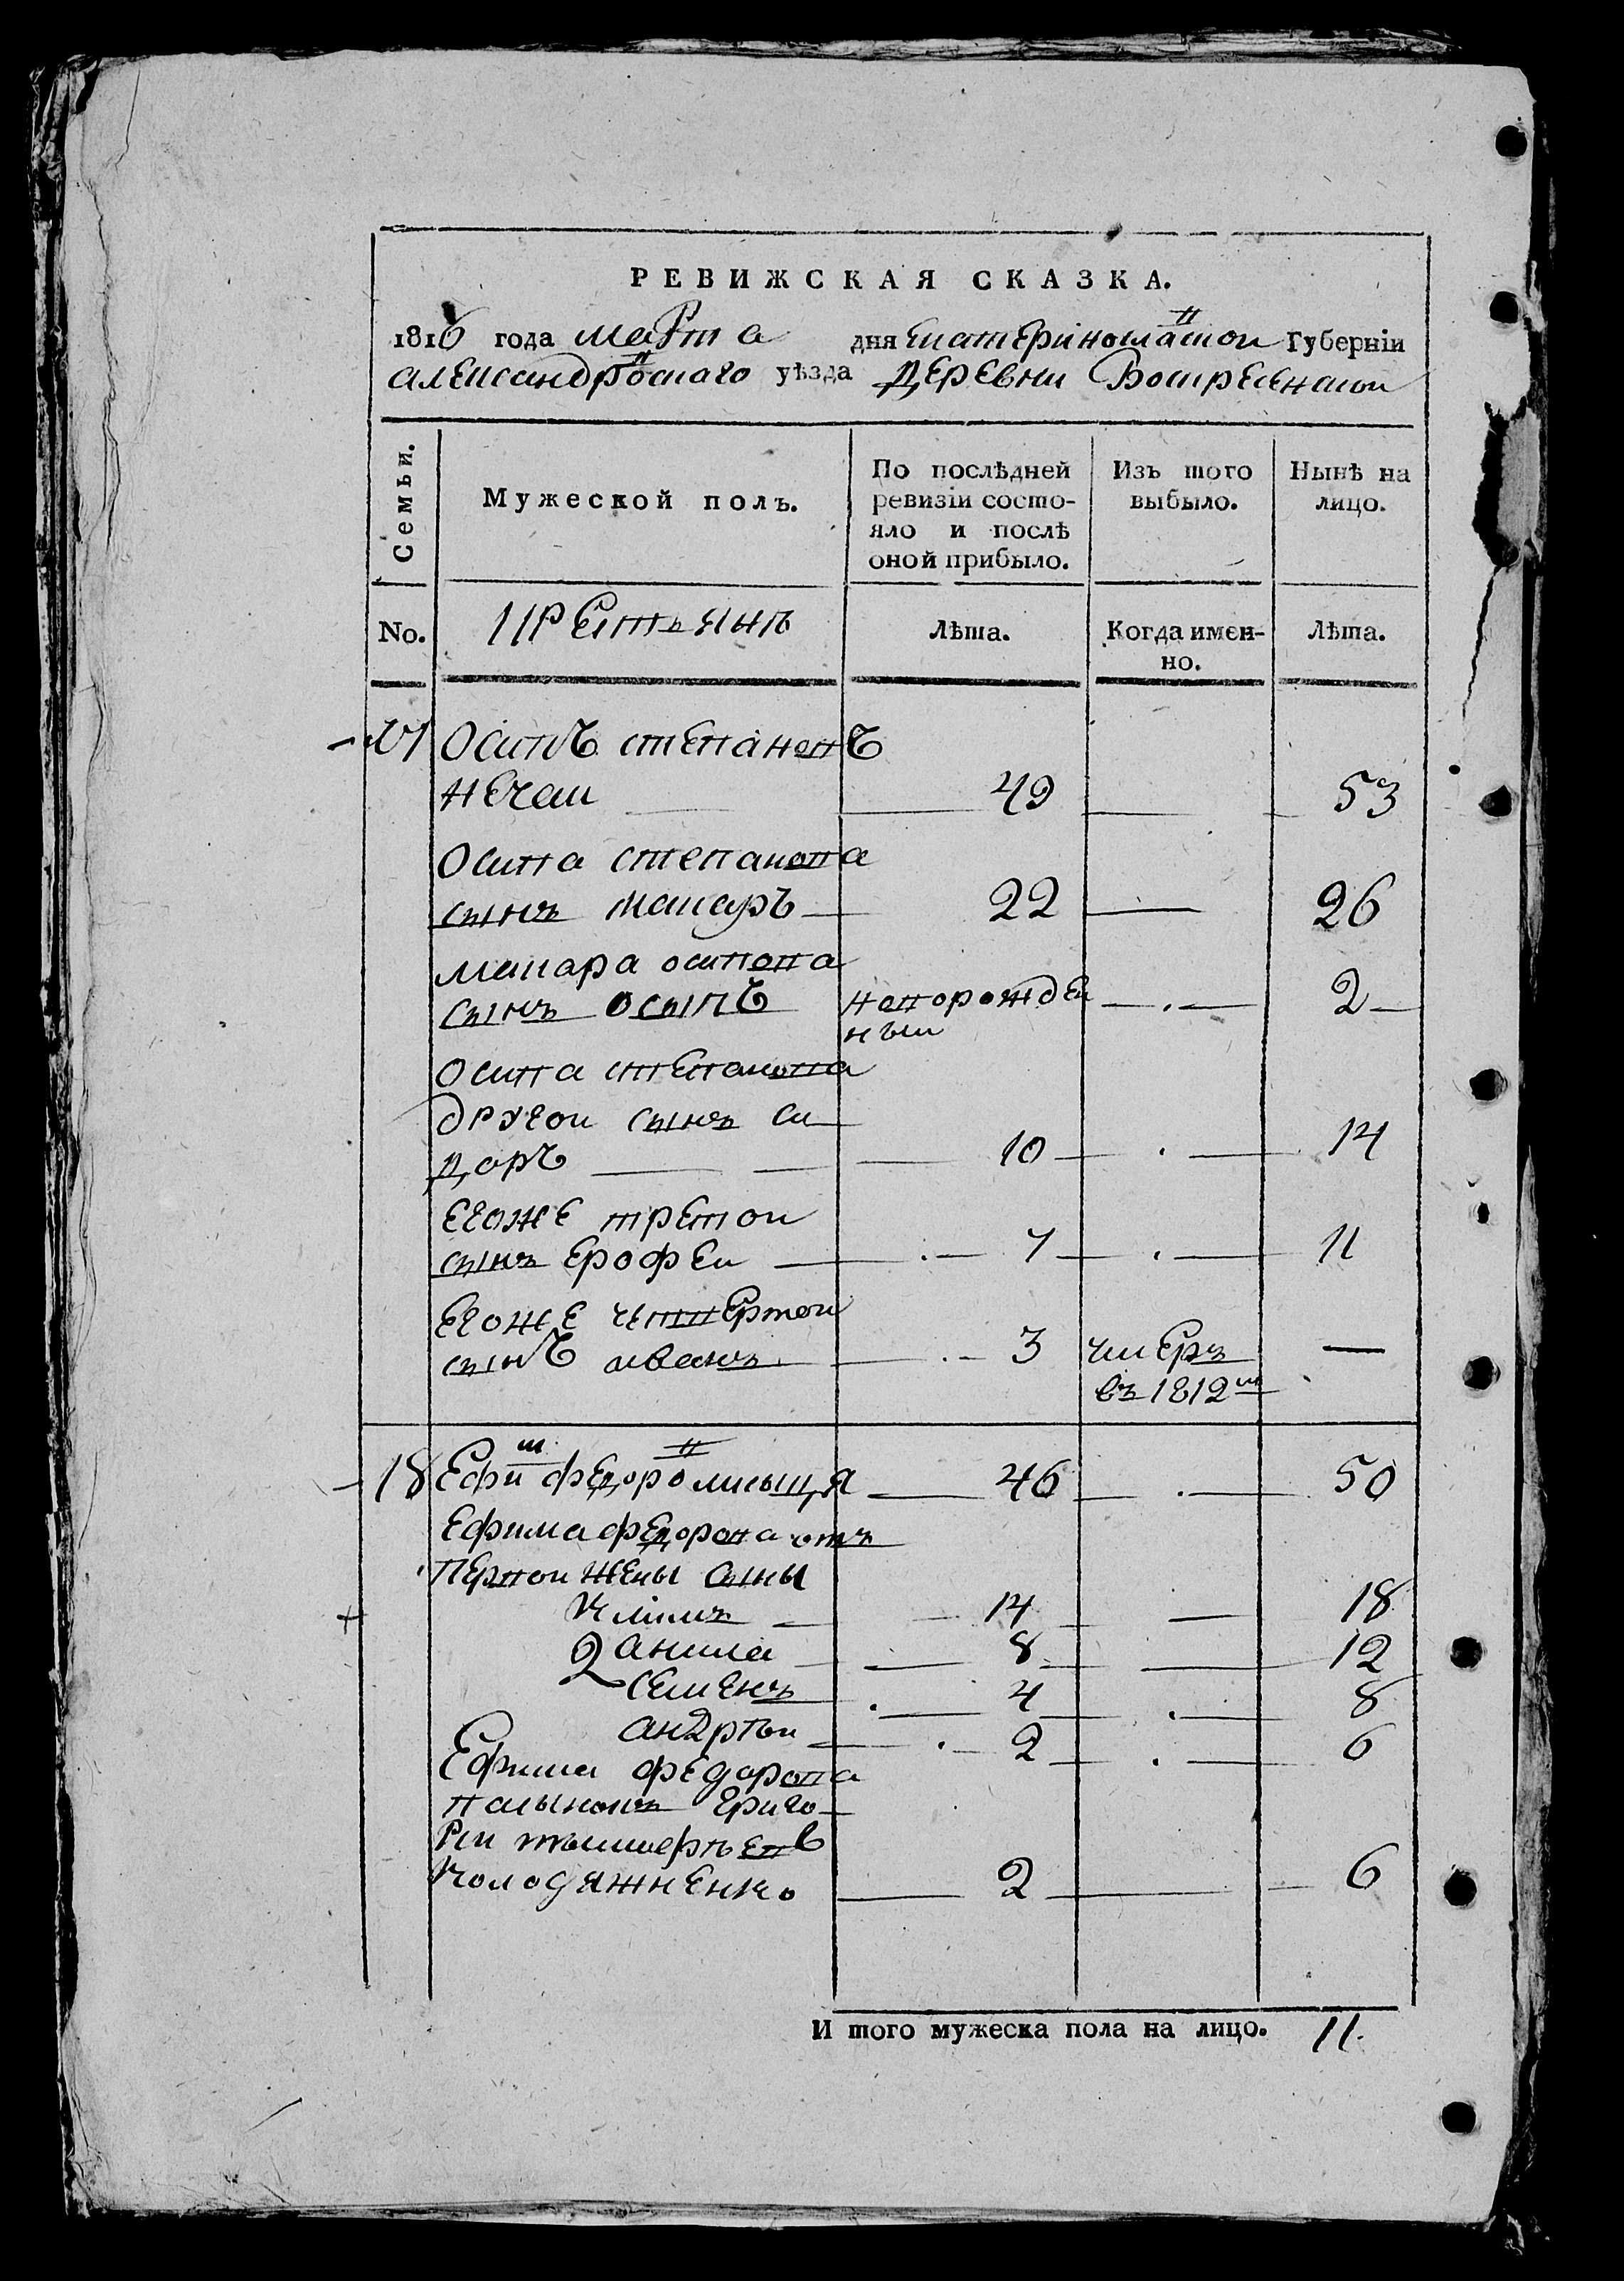 РЕВИЖСКАЯ СКАЗКА.
1816 года марта дня Екатериносла́вской Губерніи
Александровскаго уѣзда деревни Воскресенской
Семьи.
Мужеской полъ.
По послѣдней ревизіи состояло и послѣ оной прибыло.
Изъ того выбыло.
Нынѣ на лицо.
No.
крестьянъ
Лѣта.
Когда именно.
Лѣта.
17 Осипъ степановъ
нечай 49 53
Осипа степанова
сынъ макаръ 22 — 26
макара осипова
сынъ осыпъ новорожден — 2
ный
Осипа степанова
другой сынъ си
доръ 10 — 14
егоже третой
сынъ ерофей 7 — 11
егоже читвертой
сынъ иванъ 3 умеръ —
въ 1812м
18 Ефим федоров лисыця 46 — 50
Ефима федорова отъ
первой жены сыны
климъ 14 — 18
данила 8 — 12
семенъ 4 — 8
андрѣй 2 — 6
Ефима федорова
пасынокъ григо
рій
колодяжненко 2 6
И того мужеска пола на лицо. 11.